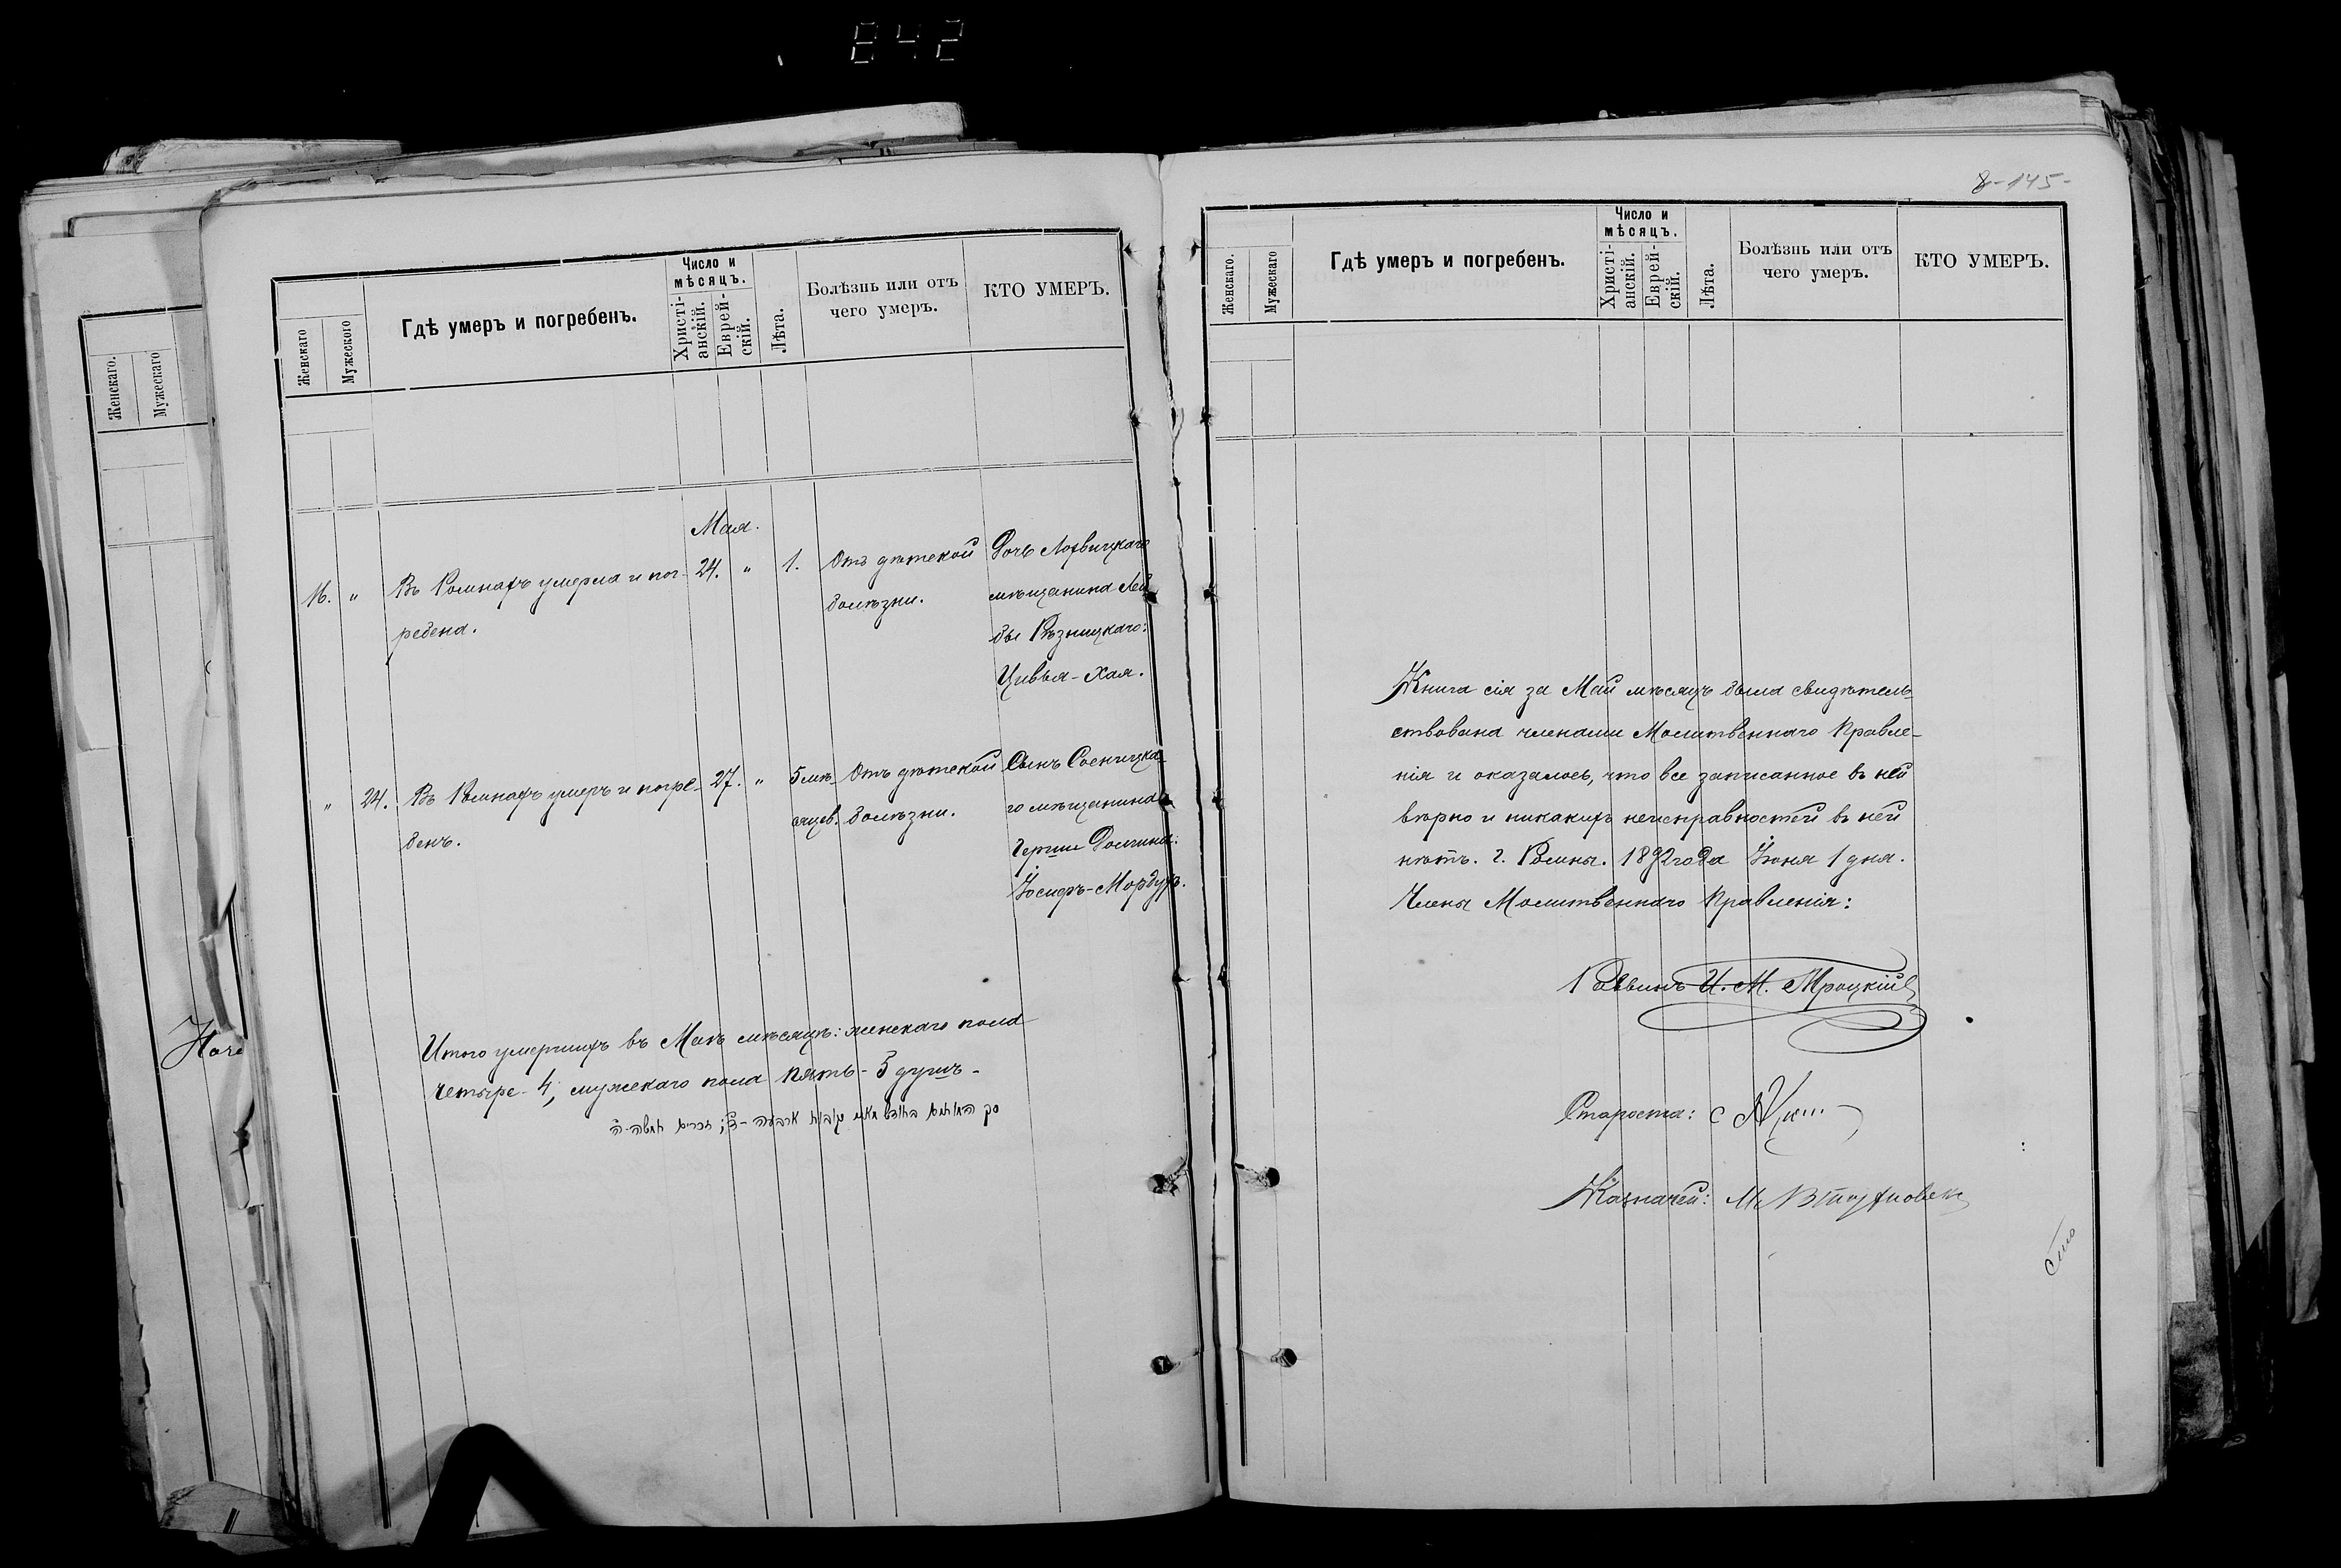 842
Женскаго.
Мужескаго
Женскаго
Мужеского
Гдѣ умеръ и погребенъ.
Число и
мѣсяцъ.
Христі-
анскій.
Еврей-
скій.
Лѣта.
Болѣзнь или отъ
чего умеръ.
КТО УМЕРЪ.
Мая.
16. " Въ Ромнахъ умерла и пог- 24. " 1. Отъ дѣтской Дочь Лохвицкаго
ребена. болѣзни. мѣщанина Лей
бы Рѣзницкаго:
Цивья-Хая.
" 24. Въ Ромнахъ умеръ и погре- 27. " 5 мѣ- Отъ дѣтской Сынъ Сосницка-
бенъ. сяцев. болѣзни. го мѣщанина
Герши Долгина:
Іосифъ-Мордухъ.
Итого умершихъ въ Маѣ мѣсяцѣ: женскаго пола
четыре- 4, мужескаго пола пять- 5 душъ-
8-145-
Женскаго.
Мужескаго
Гдѣ умеръ и погребенъ.
Число и
мѣсяцъ.
Христі-
анскій.
Еврей-
скій.
Лѣта.
Болѣзнь или отъ
чего умеръ.
КТО УМЕРЪ.
Книга сія за Май мѣсяцъ была свидѣтель-
ствована членами Молитвеннаго Правле-
нія и оказалось, что все записанное въ ней
вѣрно и никакихъ неисправностей въ ней
нѣтъ. г. Ромны. 1892 года Іюня 1 дня.
Члены Молитвеннаго Правленія:
Раввинъ И. М. Мроцкій
Староста:
Казначей: М